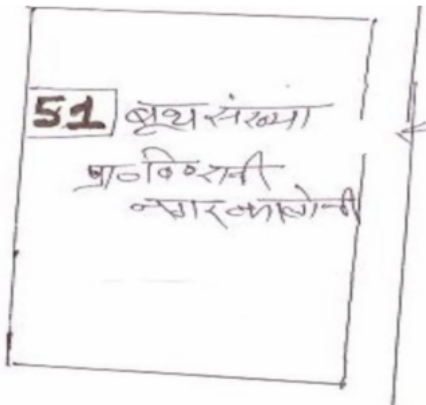 51 बूथ संख्या
प्रा०वि०रानी
नगर कालोनी